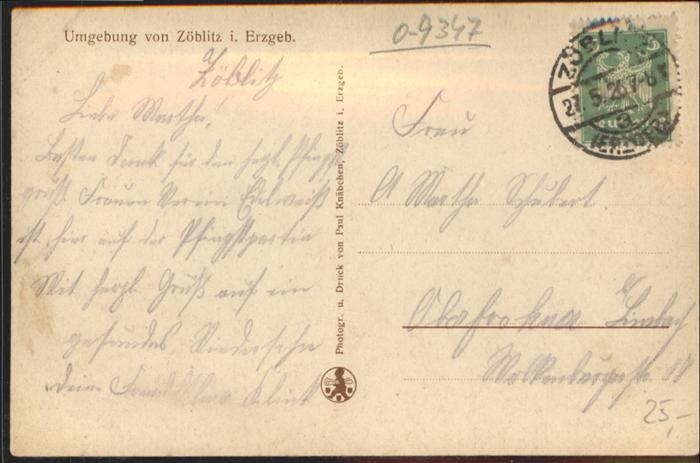 Umgebung von Zöblitz i. Erzgeb.
0-9347
Zöblitz
Liebe Martha!
Besten Dank für den herzl. Pfingst
gruß. Frauen Verein Edelweiß
ist hier auf der Pfingstpartie
Mit herzl. Gruß auf ein
gesundes Wiedersehn
deine Klink
Photogr. u. Druck von Paul Knäbchen, Zöblitz i. Erzgeb.
ZÖBLI
27.5.26.
a
Frau
Martha Schubert
Oberfrohna Limbach
Wolkenburgerstr.
25,-